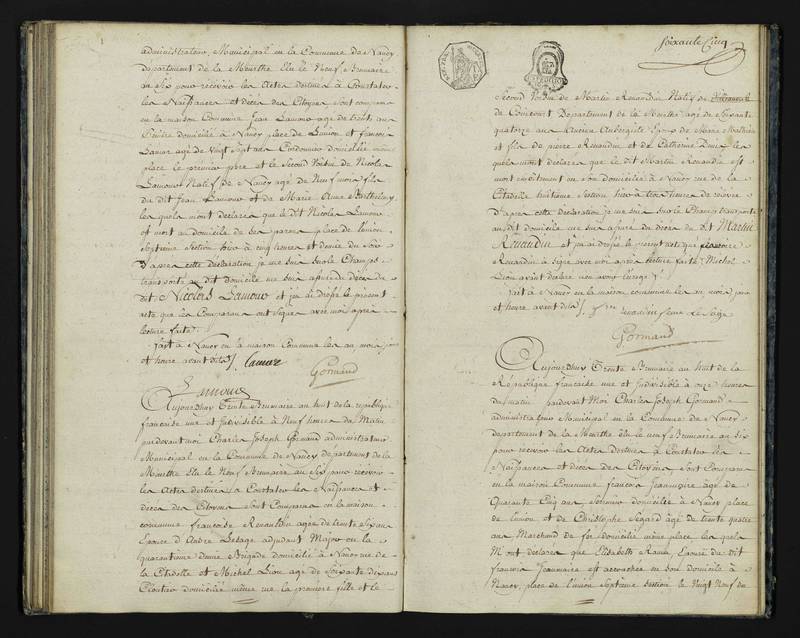 administrateur Municipal en la Commune de Nancy
Département de la Meurthe Elu le Neuf Brumaire
an Six pour recevoir les Actes destinés à Constater
les Naissances et décès des Citoyens sont comparus
en la maison Commune Jean Lamour agé de trente ans
domicilié à Nancy place de Lunion et françois
Lamour agé de Vingt Sept ans Cordonnier domicilié même
place le premier père et le Second de Nicolas
Lamour Natif de Nancy agé de Neuf mois fils
du dit Jean Lamour et de Marie Anne Barthelemy
lesquels m'ont déclaré que le dit Nicolas Lamour
est mort au domicile de ses parens place de l'union
Septième Section hier à cinq heures et demie du Soir
D'après cette déclaration je me suis sur le Champs
transporté au dit domicile me suis assuré du décès du
dit Nicolas Lamour et j'ai dressé le présent
acte que les Comparans ont signés avec moi après
lecture faite.
fait à Nancy en la maison Commune les an mois jour
et heure avant dits /. Lamour
Gormand
Lamour
Aujourdhuy Trente Brumaire an huit de la république
française une et Indivisible à Neuf heures du Matin
pardevant moi Charles Joseph Gormand administrateur
Municipal en la Commune de Nancy département de la
Meurthe Elu le Neuf Brumaire an Six pour recevoir
les Actes destinés à Constater les Naissances et
décès des Citoyens sont Comparus en la maison
commune françoise Renauldin agée de trente Six ans
Epouse d'André Lesage adjudant Major en la
quarantième demie Brigade domicilié à Nancy rue de
la Citadelle et Michel Lion agé de Soixante dix ans
domicilié même rue la première fille et le
Soixante Cinq
Second de Martin Renaudin Natif de
de Département de la Meurthe agé de Soixante
quatorze ans Ancien Aubergiste Epoux de Marie Mathieu
et fils de pierre Renaudin et de Catherine
lesquels m'ont déclaré que le dit Martin Renaudin est
mort subitement en son domicile à Nancy rue de la
Citadelle huitième Section hier à trois heures de
D'après cette déclaration je me suis sur le Champ transporté
au dit domicile me suis assuré du décès du dit Martin
Renaudin et j'ai dressé le présent acte que françoise
Renaudin a signé avec moi après lecture faite, Michel
Lion ayant déclaré
fait à Nancy en la maison commune les an mois jour
et heure avant dits /. renaudin feme le Sage
Gormand
Aujourdhuy Trente Brumaire an huit de la
République française une et Indivisible à onze heures
du matin pardevant Moi Charles Joseph Gormand
administrateur Municipal en la Commune de Nancy
département de la Meurthe Elu le neuf Brumaire an six
pour recevoir les Actes destinés à Constater les
Naissances et décès des Citoyens sont Comparus
en la maison Commune françois Jeanmaire agé de
Quarante Cinq ans domicilié à Nancy place
de Lunion et de Christophe agé de trente quatre
ans Marchand de fer domicilié même place lesquels
M'ont déclaré que Elisabeth Epouse du dit
françois Jeanmaire est accouchée en son domicile à
Nancy, place de l'union Septième Section le Vingt Neuf du